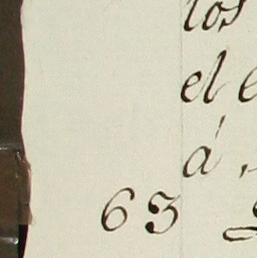 los
el
á
63